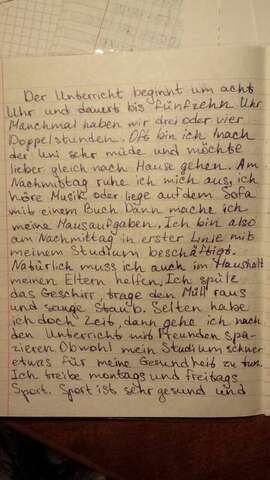 Der Unterricht beginnt um acht
Uhr und dauert bis fünfzehn Uhr
Manchmal haben wir drei oder vier
Doppelstunden. Oft bin ich nach
der Uni sehr müde und möchte
lieber gleich nach Hause gehen. Am
Nachmittag ruhe ich mich aus, ich
höre Musik oder liege auf dem Sofa
mit einem Buch Dann mache ich
meine Hausaufgaben. Ich bin also
am Nachmittag in erster Linie mit
meinem Studium beschäftigt.
Natürlich muss ich auch im Haushalt
meinen Eltern helfen. Ich spüle
das Geschirr, trage den Müll raus
und sauge Staub. Selten habe
ich doch Zeit, dann gehe ich nach
den Unterricht mit Freunden spa-
zieren. Obwohl mein Studium schwer
etwas für meine Gesundheit zu tun.
Ich treibe montags und freitags
Sport. Sport ist sehr gesund und